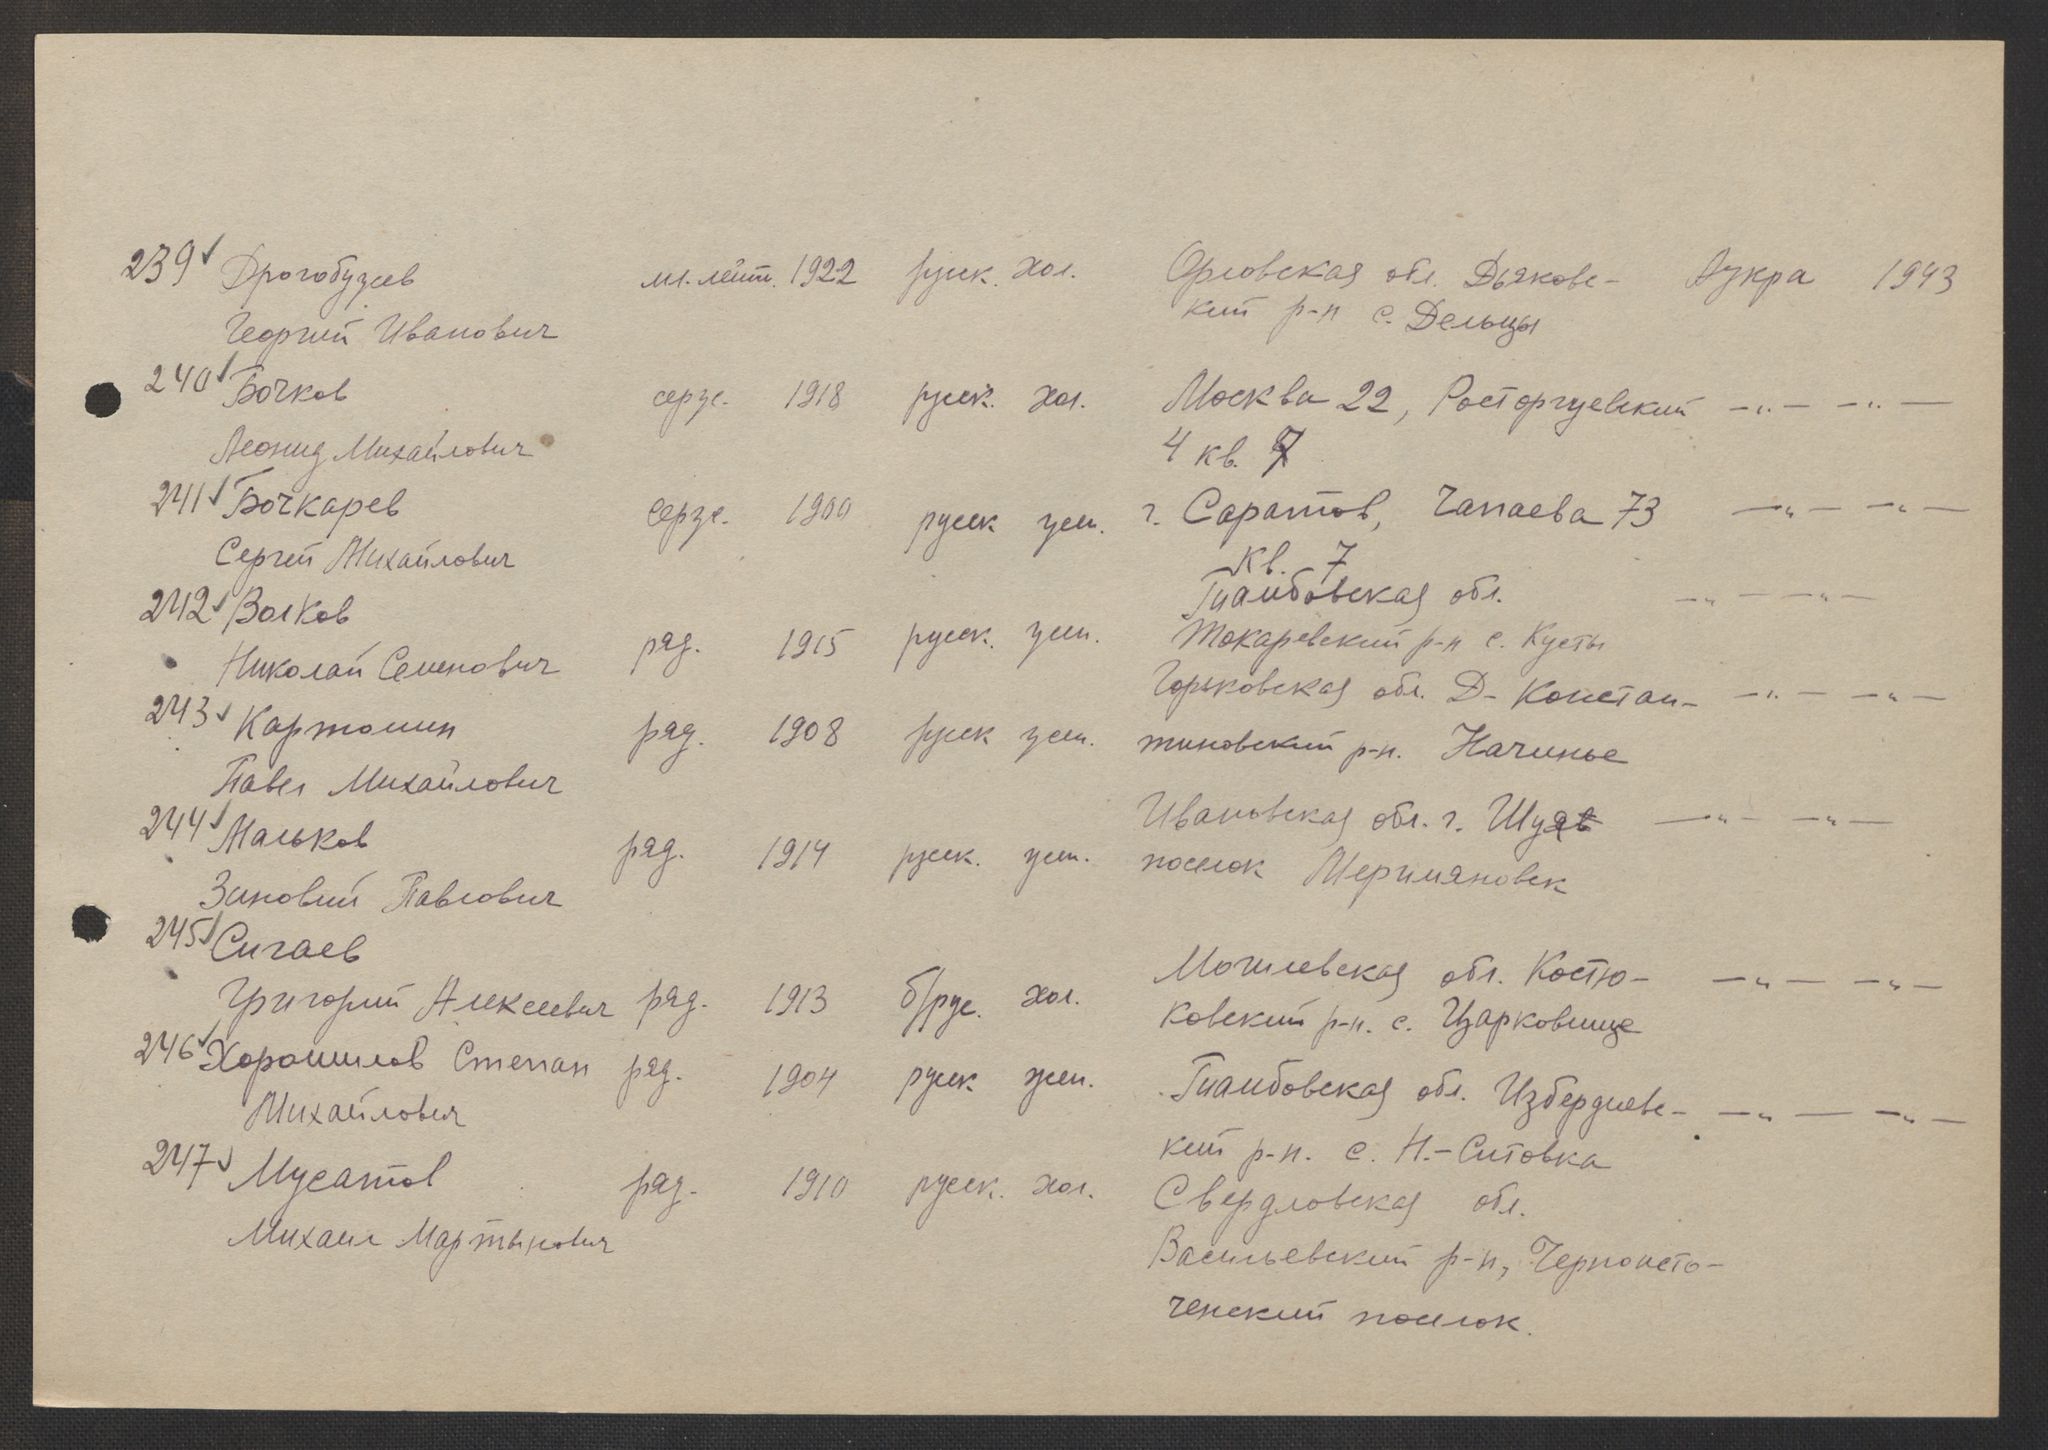 239 Дрогобужев мл. лейт. 1922 русск. хол. Орловская обл. Дьяковс- Аукра 1943
Георгий Иванович кий р-н с. Дельцы
240 Бочков серж. 1918 русск. хол. Москва 22, Расторгуевский —„— —„—
Леонид Михайлович 4 кв. 7
241 Бочкарев серж. 1900 русск жен. г. Саратов, Чапаева 73 —„— —„—
Сергей Михайлович кв. 7
242 Волков Тамбовская обл. —„— —„—
Николай Семенович ряд. 1915 русск. жен. Токаревский р-н с. Кусты
243 Картошин ряд. 1908 русск жен. Горьковская обл. Д-Констан- —„— —„—
Павел Михайлович тиновский р-н. Начинье
244 Мальков ряд. 1914 русск. жен. Ивановская обл. г. Шуя —„— —„—
Зиновий Павлович поселок
245 Сигаев
Григорий Алексеевич ряд. 1913 б/рус. хол. Могилевская обл. Костю- —„— —„—
ковский р-н. с. Царковище
246 Хорошилов Степан ряд. 1904 русск жен. Тамбовская обл. Избердиевс- —„— —„—
Михайлович кий р-н. с. Н.-Ситовка
247 Мусатов ряд. 1910 русск. хол. Свердловская обл.
Михаил Мартынович Васильевский р-н, Черноисто-
ченский поселок.